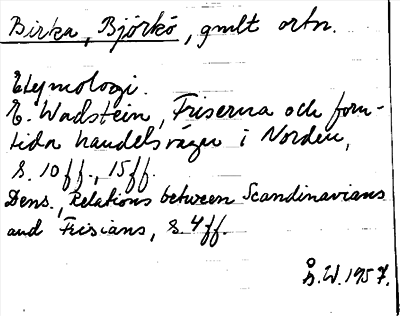 Birka, Björkö, gmlt ortn.
Etymologi.
E. Wadstein, Friserna och forn-
tida handelsvägar i Norden,
s. 10 ff., 15 ff.
Dens., Relations between Scandinavians
and Frisians, s. 4 ff.
Å.W. 1957.